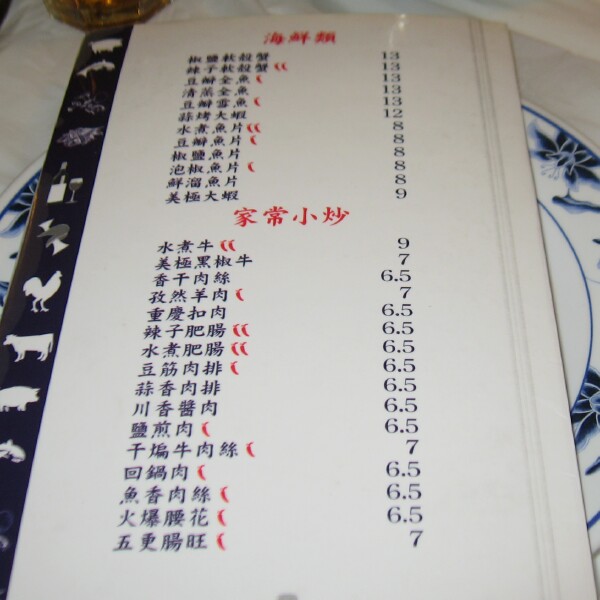 海鮮類
椒鹽軟殼蟹 13
辣子軟殼蟹 13
豆瓣全魚 13
清蒸全魚 13
豆瓣雪魚 13
蒜烤大蝦 12
水煮魚片 8
豆瓣魚片 8
椒鹽魚片 8
泡椒魚片 8
鮮溜魚片 8
美極大蝦 9
家常小炒
水煮牛 9
美極黑椒牛 7
香干肉絲 6.5
孜然羊肉 7
重慶扣肉 6.5
辣子肥腸 6.5
水煮肥腸 6.5
豆筋肉排 6.5
蒜香肉排 6.5
川香醬肉 6.5
鹽煎肉 6.5
干煸牛肉絲 7
回鍋肉 6.5
魚香肉絲 6.5
火爆腰花 6.5
五更腸旺 7